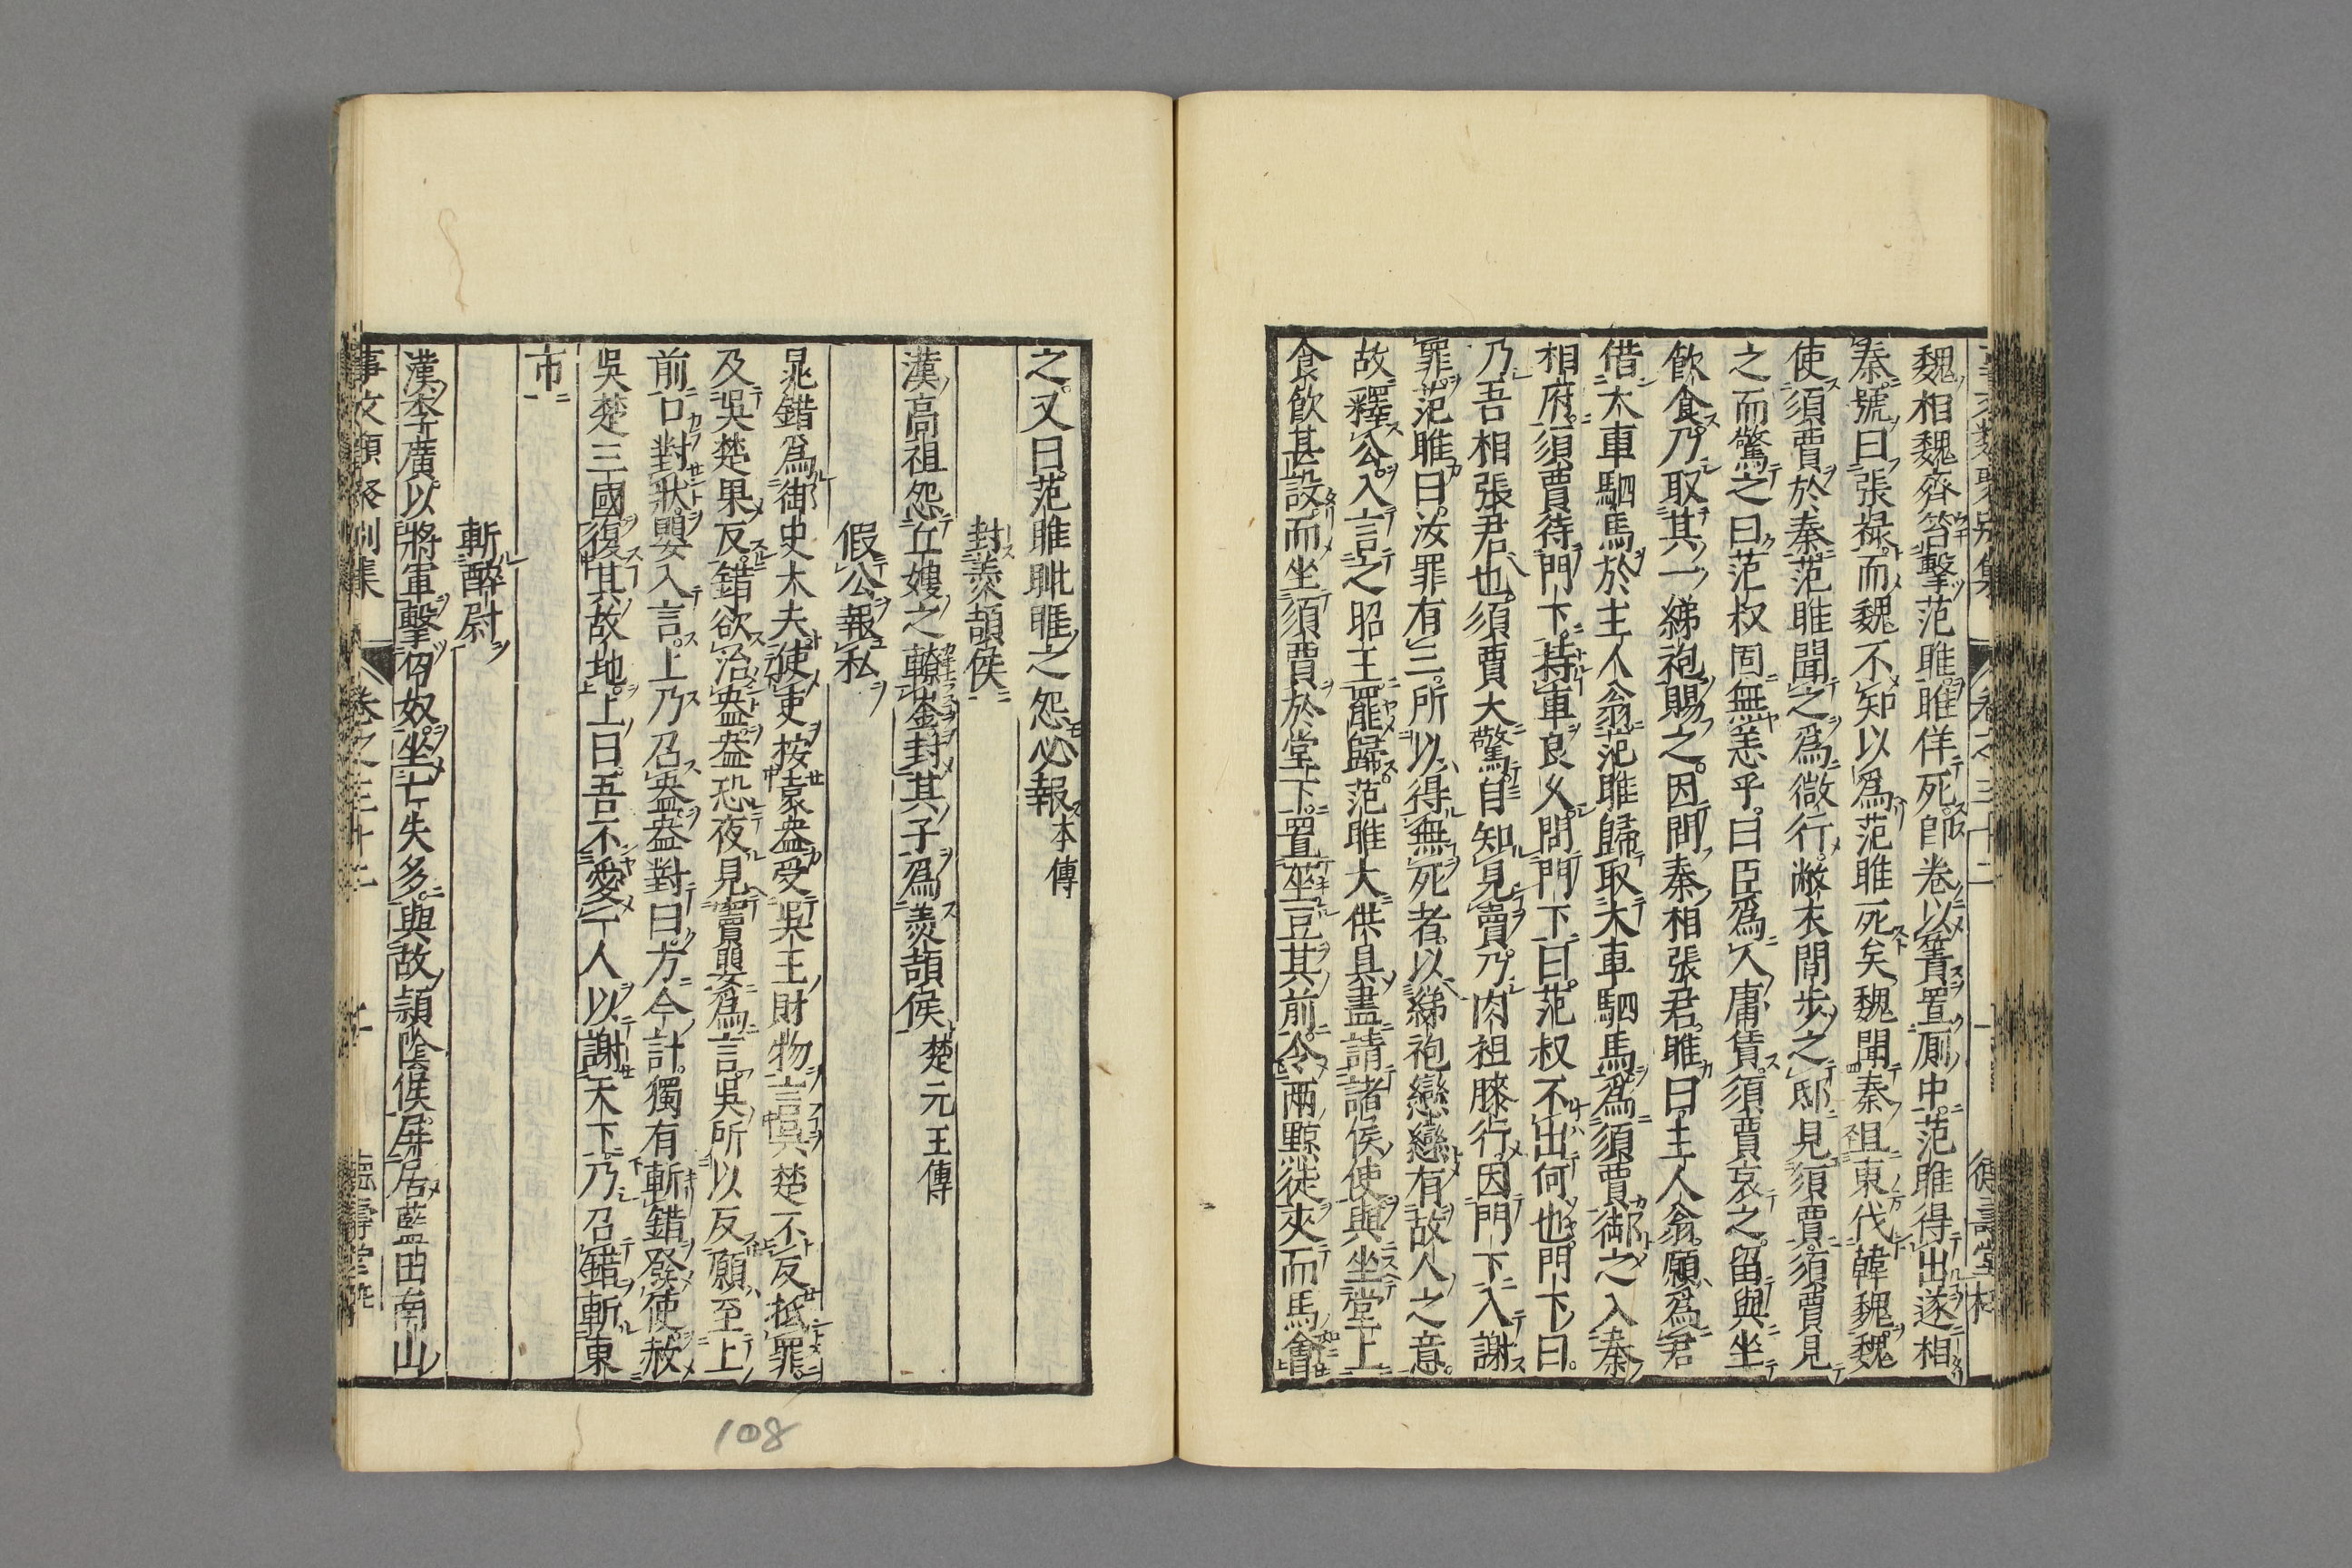 魏相魏齊笞擊范雎雎佯死卽卷以簀置厠中范雎得出遂相
秦號曰張祿而魏不知以爲范雎死矣魏聞秦且東伐韓魏魏
使須賈於秦范雎聞之爲微行敝衣間步之邸見須賈須賈見
之而驚之曰范叔固無恙乎曰臣爲人庸賃須賈哀之留與坐
飲食乃取其一綈袍賜之因問秦相張君雎曰主人翁願爲君
借大車駟馬於主人翁范雎歸取大車駟馬爲須賈御之入秦
相府須賈待門下持車良久問門下曰范叔不出何也門下曰
乃吾相張君也須賈大驚自知見賣乃肉袒膝行因門下入謝
罪范雎曰汝罪有三所以得無死者以綈袍戀戀有故人之意
故釋公入言之昭王罷歸范雎大供具盡請諸侯使與坐堂上
食飲甚設而坐須賈於堂下置莝豆其前令兩黥徒夾而馬食
之又曰范雎眦睚之怨必報本傳
封羹頡侯
漢高祖怨丘嫂之轑釜封其子爲羹頡侯楚元王傳
假公報私
晁錯爲御史大夫使吏按袁盎受吳王財物言吳楚不反抵罪
及吳楚果反錯欲治盎盎恐夜見竇嬰爲言吳所以反願至上
前口對狀嬰入言上乃召盎盎對曰方今計獨有斬錯發使赦
吳楚三國復其故地上曰吾不愛一人以謝天下乃召錯斬東
市
斬醉尉
漢李廣以將軍擊匈奴坐亡失多與故頴陰侯屏居藍田南山
事文類聚別集 卷之三十二